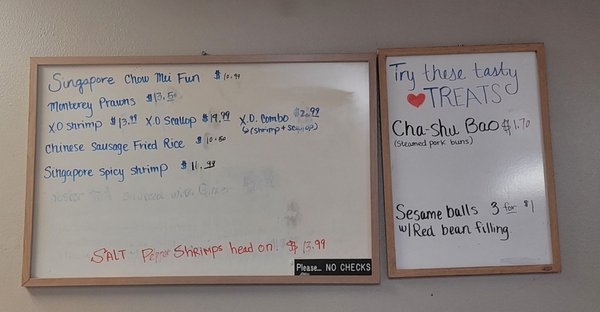 Singapore Chow Mei Fun $10.99
Monterey Prawns $13.50
X.O shrimp $13.99 X.O Scallop $19.99 X.O. Combo
(shrimp + scallop)
Chinese Sausage Fried Rice $10.50
Singapore Spicy shrimp $11.99
SALT Pepper SHRIMPS head on! $13.99
Please... NO CHECKS
Try these tasty
TREATS
Cha-shu Bao $1.70
(Steamed pork buns)
Sesame balls 3 for $1
w/Red bean filling